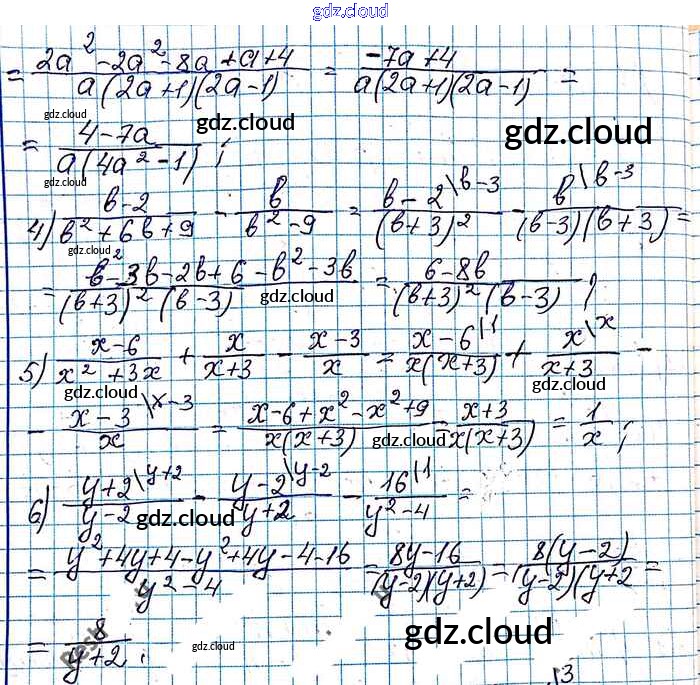 gdz.cloud
= (2a² - 2a² - 8a + a + 4)/(a(2a+1)(2a-1)) = (-7a+4)/(a(2a+1)(2a-1)) =
= (4-7a)/(a(4a²-1));
gdz.cloud
gdz.cloud
gdz.cloud
gdz.cloud
4) (b-2)/(b²+6b+9) - b/(b²-9) = (b-2\b-3)/((b+3)²) - (b\b+3)/((b-3)(b+3)) =
gdz.cloud
= (b²-3b-2b+6-b²-3b)/((b+3)²(b-3)) = (6-8b)/((b+3)²(b-3));
gdz.cloud
5) (x-6)/(x²+3x) + x/(x+3) - (x-3)/x = (x-6\1)/(x(x+3)) + (x\x)/(x+3) -
gdz.cloud
gdz.cloud
- (x-3\x-3)/x = (x-6+x²-x²+9)/(x(x+3)) = (x+3)/(x(x+3)) = 1/x;
gdz.cloud
6) (y+2\y+2)/(y-2) - (y-2\y-2)/(y+2) - (16\1)/(y²-4) =
gdz.cloud
= (y²+4y+4-y²+4y-4-16)/(y²-4) = (8y-16)/((y-2)(y+2)) = (8(y-2))/((y-2)(y+2 =
= 8/(y+2);
gdz.cloud
gdz.cloud